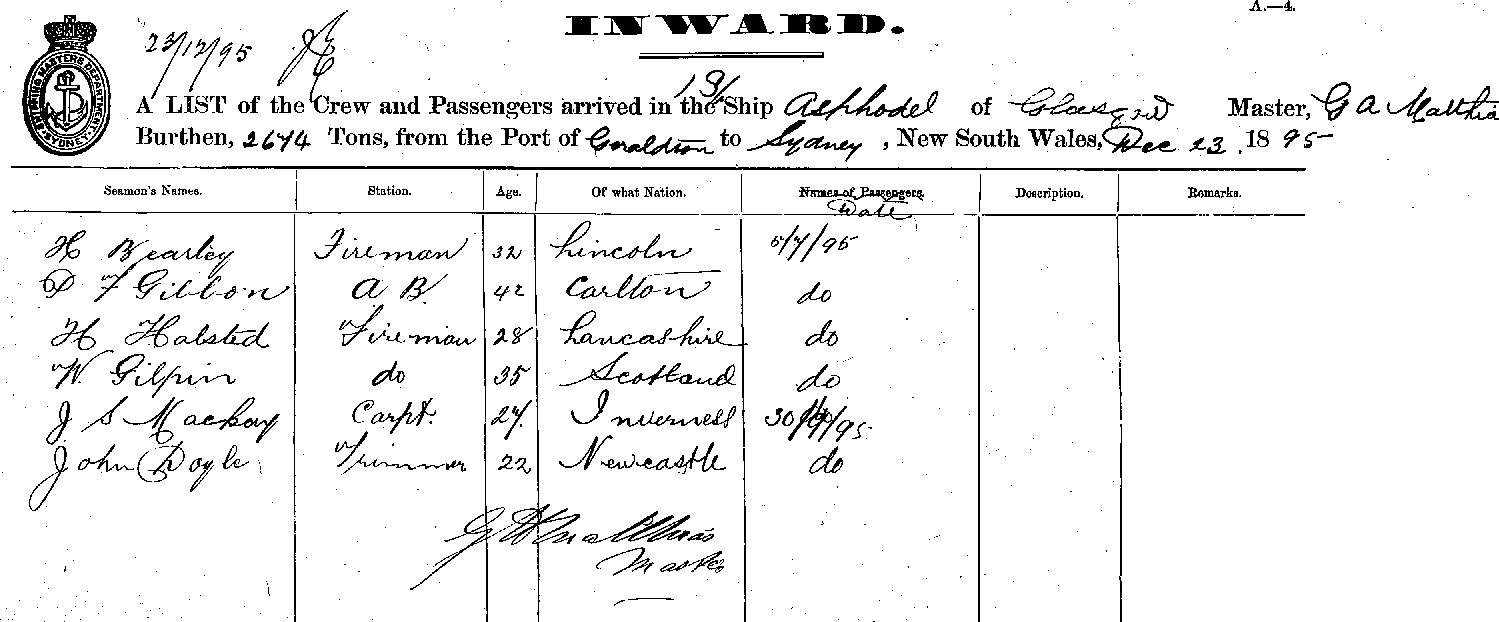 A.—4.
INWARD.
23/12/95
SHIPPING MASTERS DEPARTMENT SYDNEY
A LIST of the Crew and Passengers arrived in the Ship Asphodel of Glasgow Master, G A Matthias
Burthen, 2674 Tons, from the Port of Geraldton to Sydney, New South Wales, Dec 23 1895
Seamen's Names. Station. Age. Of what Nation. Names of Passengers. Description. Remarks.
Date
H Bearley Fireman 32 Lincoln 5/7/95
D F Gibbon A B. 42 Carlton do
H Halsted Fireman 28 Lancashire do
W. Gilpin do 35 Scotland do
J S Mackay Carpt. 27. Inverness 30/ /95
John Doyle Trimmer 22 Newcastle do
G A Matthias
Master